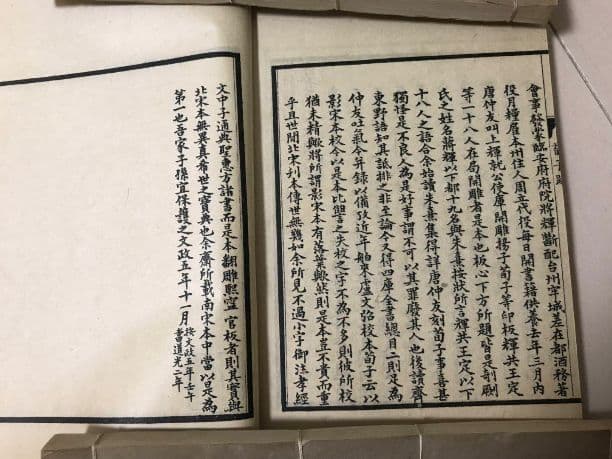 會事發蒙臨安府府院將輝斷配台州牢城差在都酒務著
役月糧雇本州住人周立代役每日開書籍供養去年三月內
唐仲友叫上輝就公使庫開雕揚子荀子等印板輝共王定
等一十八人在局開雕者是本也板心下方所題皆是剞劂
氏之姓名蔣輝以下都十九名與朱熹按狀所言輝共王定以下
十八人之語合余始讀朱熹集得詳唐仲友刻荀子事喜甚
獨怪是不良人為是好事謂不可以其罪廢其人也後讀齊
東野語知其詆排之非至論今又得四庫全書總目二則是為
仲友吐氣今并錄以備攷近年舶來盧文弨校本荀子云以
影宋本校今以是本比讐之失校之字不為不多則彼所校
猶未精歟將所謂影宋本有落葉歟然則是本豈不貴而重
乎且世間北宋刊本傳世無幾如余所見不過小字御注孝經
文中子通典聖惠方諸書而是本翻雕熙寧官板者則其實與
北宋本無異真希世之寶典也余齋所藏南宋本中當以是為
第一也吾家子孫宜保護之文政五年十一月
按文政五年壬午
當道光二年